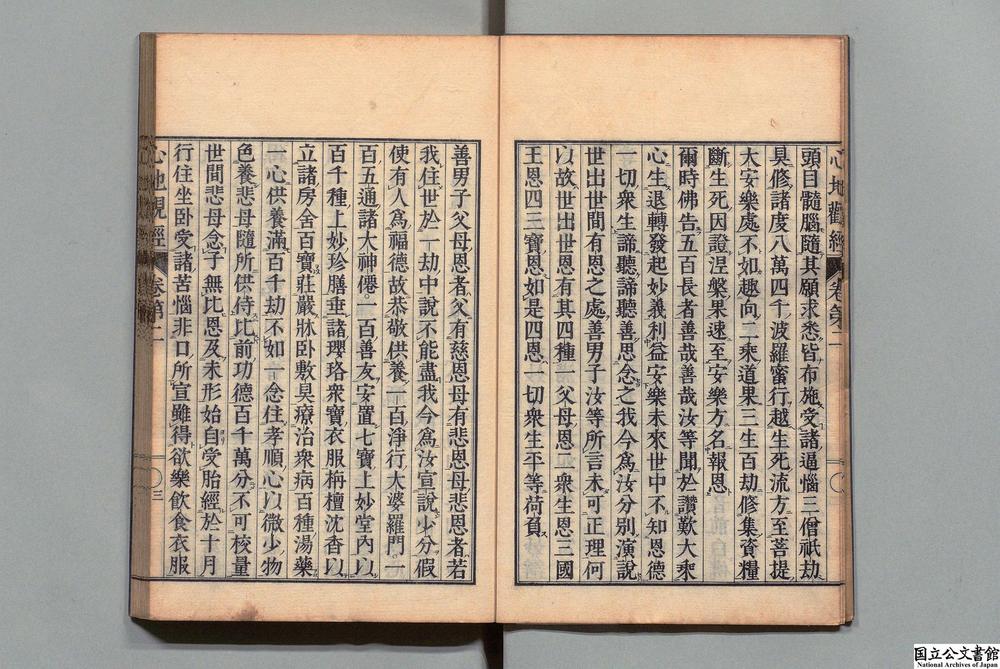 心地觀經 卷第二
頭目髓腦隨其願求悉皆布施受諸逼惱三僧祇劫
具修諸度八萬四千波羅蜜行越生死流方至菩提
大安樂處不如趣向二乘道果三生百劫修集資糧
斷生死因證涅槃果速至安樂方名報恩
爾時佛告五百長者善哉善哉汝等聞於讚歎大乘
心生退轉發起妙義利益安樂未來世中不知恩德
一切衆生諦聽諦聽善思念之我今爲汝分別演說
世出世間有恩之處善男子汝等所言未可正理何
以故世出世恩有其四種一父母恩二衆生恩三國
王恩四三寶恩如是四恩一切衆生平等荷負
善男子父母恩者父有慈恩母有悲恩母悲恩者若
我住世於一劫中說不能盡我今爲汝宣說少分假
使有人爲福德故恭敬供養一百淨行大婆羅門一
百五通諸大神僊一百善友安置七寶上妙堂內以
百千種上妙珍膳垂諸瓔珞衆寶衣服栴檀沈香以
立諸房舍百寶莊嚴牀卧敷具療治衆病百種湯藥
一心供養滿百千劫不如一念住孝順心以微少物
色養悲母隨所供侍比前功德百千萬分不可校量
世間悲母念子無比恩及未形始自受胎經於十月
行住坐卧受諸苦惱非口所宣雖得欲樂飲食衣服
心地觀經 卷第二
三
国立公文書館
National Archives of Japan